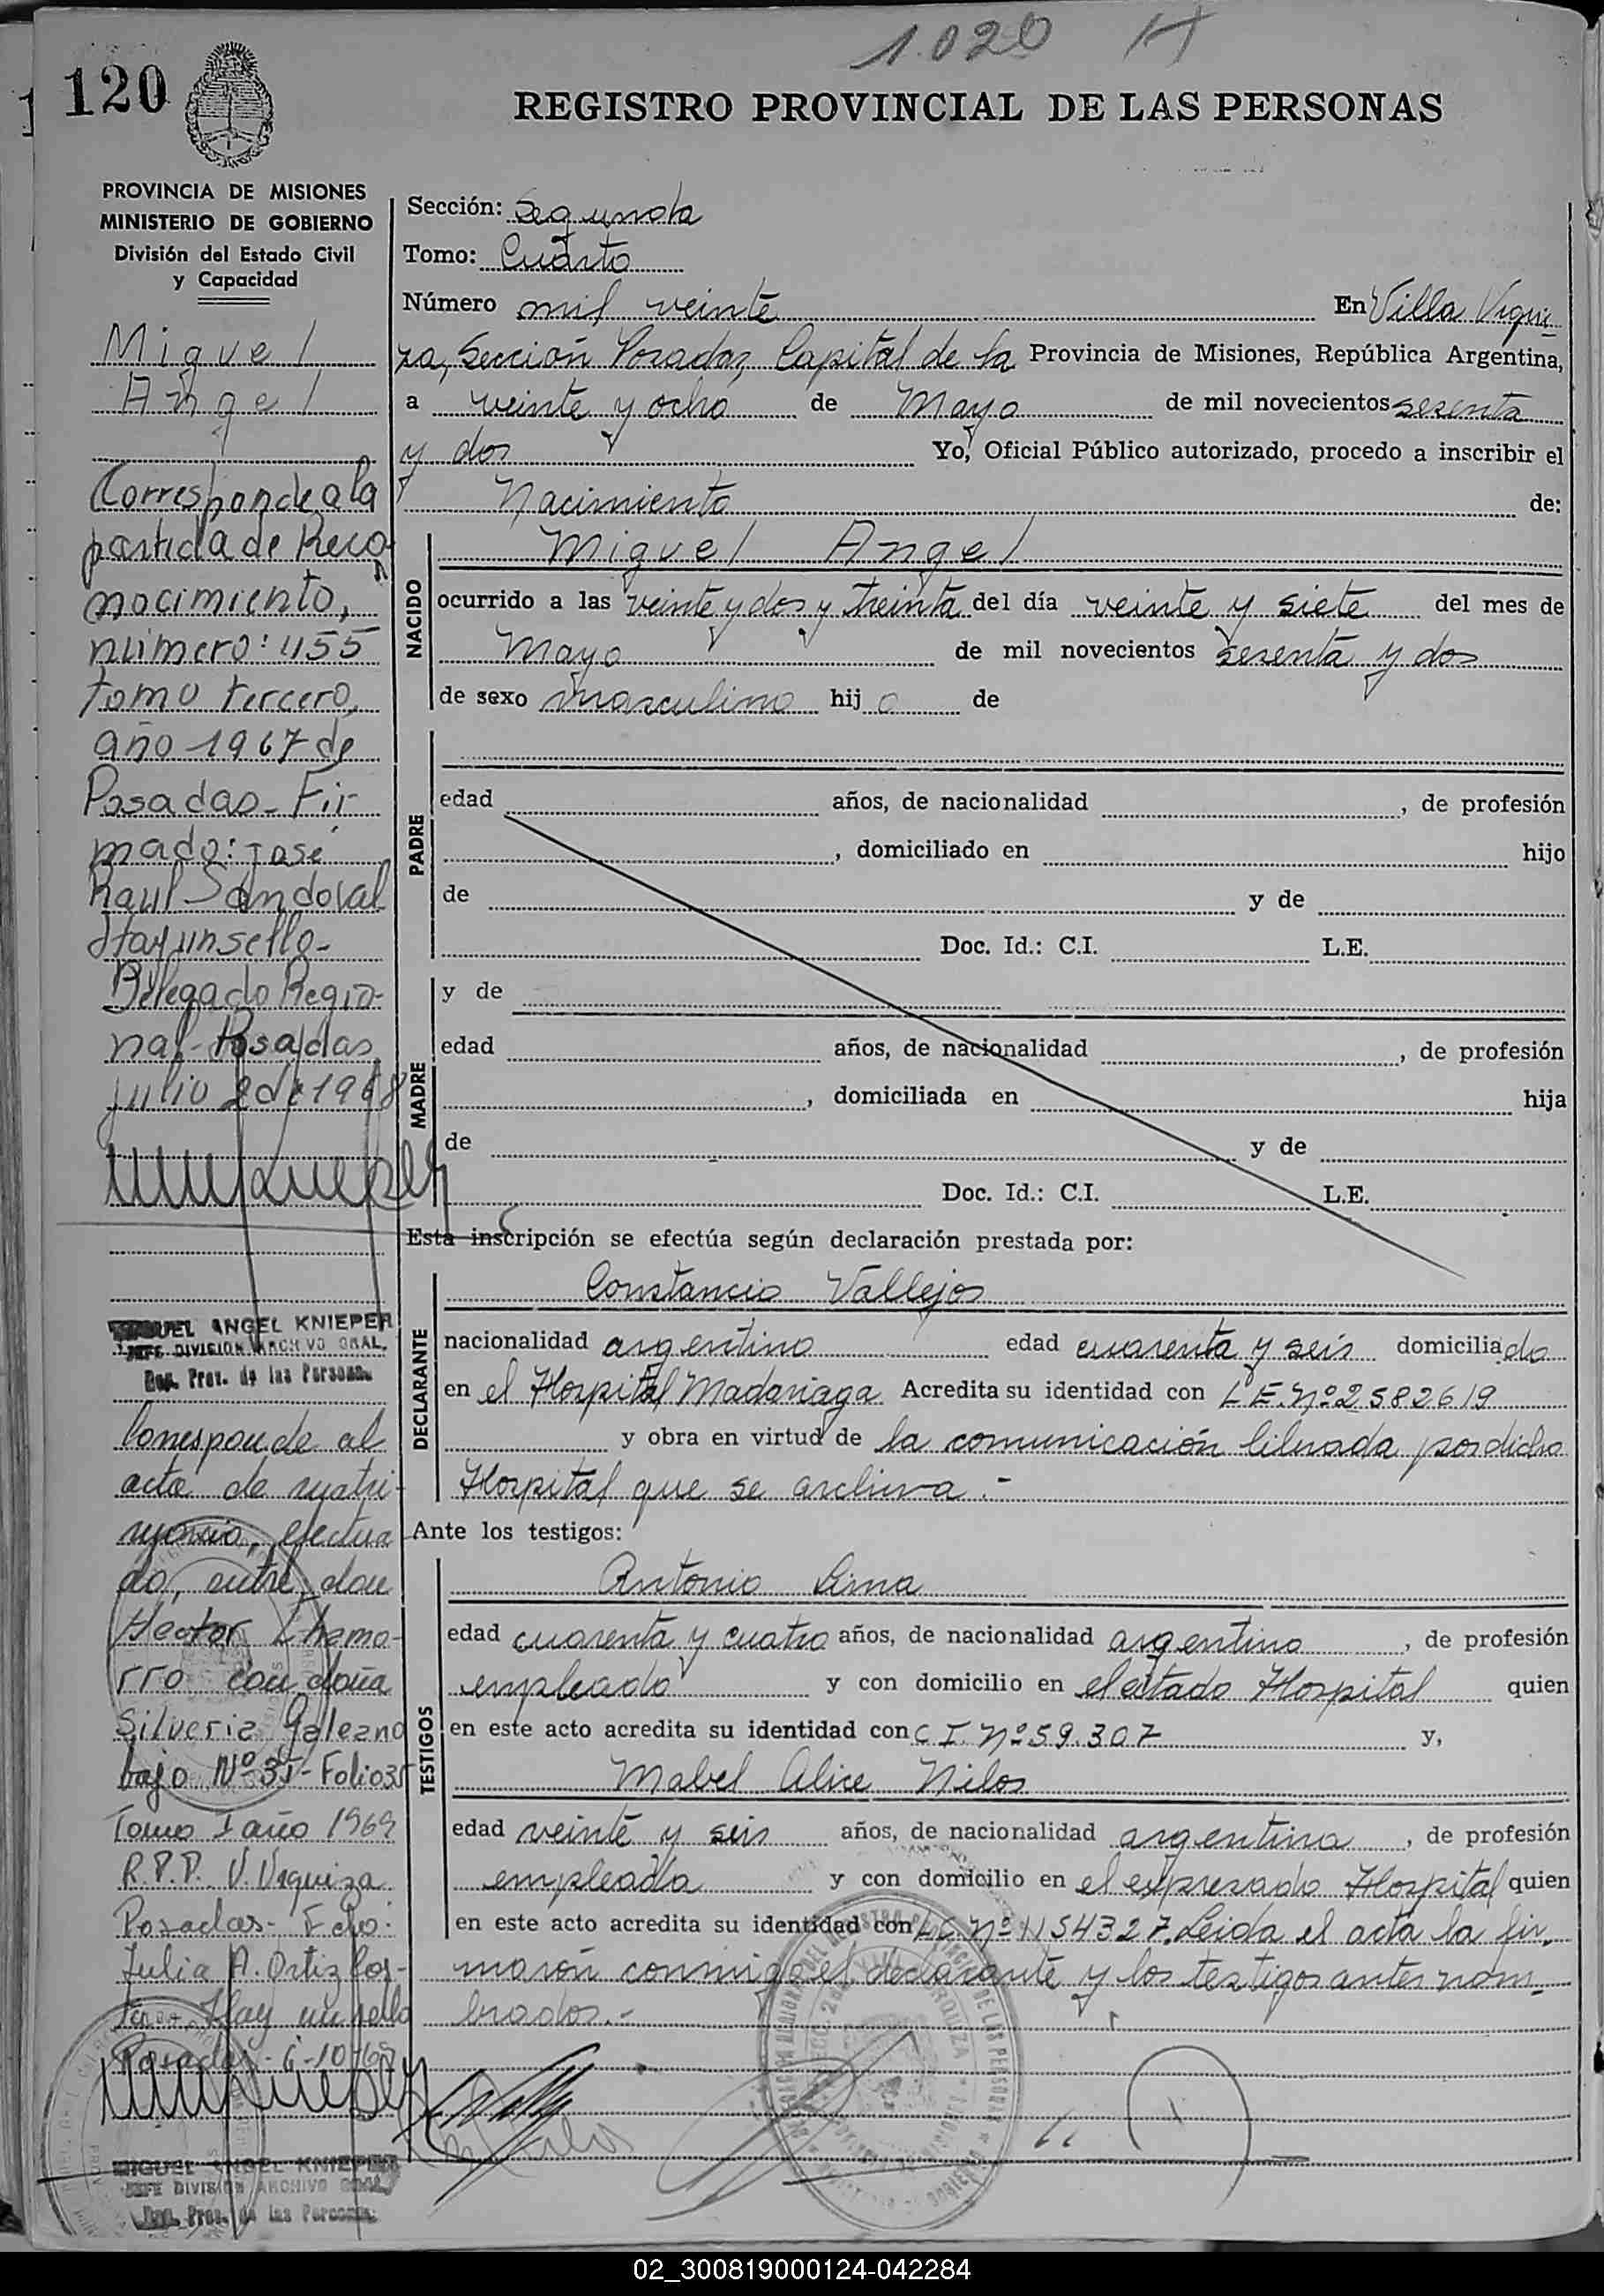 1.020 H
120
REGISTRO PROVINCIAL DE LAS PERSONAS
PROVINCIA DE MISIONES
MINISTERIO DE GOBIERNO
División del Estado Civil
y Capacidad
Miguel
Angel
Corresponde a la
partida de Reco
nocimiento,
número: 455
tomo tercero,
año 1967 de
Posadas - Fir
mado: José
Raul Sandoval
Hay un sello -
Delegado Regio-
nal - Posadas
julio 2 de 1968
MIGUEL ANGEL KNIEPER
JEFE DIVISION ARCHIVO GRAL.
Reg. Prov. de las Personas
Corresponde al
acta de matri-
monio, efectua
do, entre don
Hector Chamo-
rro con doña
Silveria Galeano
bajo Nº 35 - Folio 35
Tomo I año 1969
R.P.P. V. Urquiza
Posadas - Fdo:
Julia A. Ortiz
Hay un sello
Posadas - 6-10-69
MIGUEL ANGEL KNIEPER
JEFE DIVISION ARCHIVO GRAL.
Reg. Prov. de las Personas
Sección: Segunda
Tomo: Cuarto
Número mil veinte En Villa Urqui-
za, Sección Posadas, Capital de la Provincia de Misiones, República Argentina,
a veinte y ocho de Mayo de mil novecientos sesenta
y dos Yo, Oficial Público autorizado, procedo a inscribir el
Nacimiento de:
NACIDO
Miguel Angel
ocurrido a las veinte y dos y treinta del día veinte y siete del mes de
Mayo de mil novecientos sesenta y dos
de sexo masculino hijo de
PADRE
edad años, de nacionalidad , de profesión
, domiciliado en hijo
de y de
Doc. Id.: C.I. L.E.
y de
MADRE
edad años, de nacionalidad , de profesión
, domiciliada en hija
de y de
Doc. Id.: C.I. L.E.
Esta inscripción se efectúa según declaración prestada por:
DECLARANTE
Constancio Vallejos
nacionalidad argentino edad cuarenta y seis domiciliado
en el Hospital Madariaga Acredita su identidad con L.E. Nº 2582619
y obra en virtud de la comunicación librada por dicho
Hospital que se archiva.-
Ante los testigos:
TESTIGOS
Antonio Lima
edad cuarenta y cuatro años, de nacionalidad argentino, de profesión
empleado y con domicilio en el citado Hospital quien
en este acto acredita su identidad con C.I. Nº 59.307 y,
Mabel Alice Nilos
edad veinte y seis años, de nacionalidad argentina, de profesión
empleada y con domicilio en el expresado Hospital quien
en este acto acredita su identidad con L.C. Nº 1154327. Leida el acta la fir-
maron conmigo el declarante y los testigos antes nom-
brados.-
02_300819000124-042284